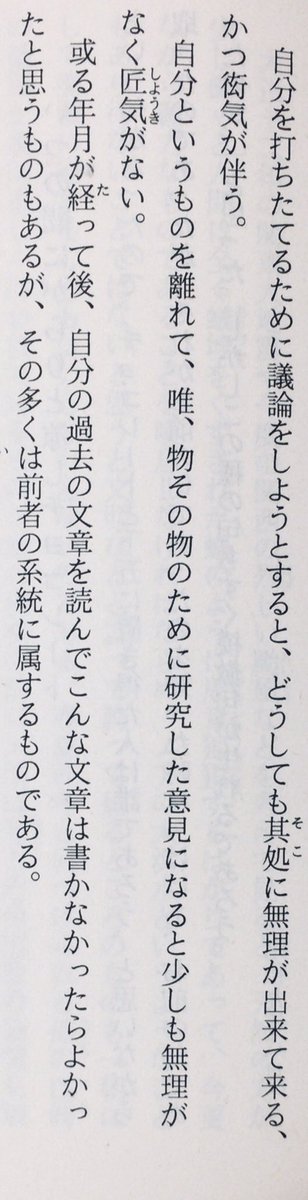 自分を打ちたてるために議論をしようとすると、どうしても其処に無理が出来て来る、
かつ衒気が伴う。
自分というものを離れて、唯、物その物のために研究した意見になると少しも無理が
なく匠気がない。
或る年月が経って後、自分の過去の文章を読んでこんな文章は書かなかったらよかっ
たと思うものもあるが、その多くは前者の系統に属するものである。